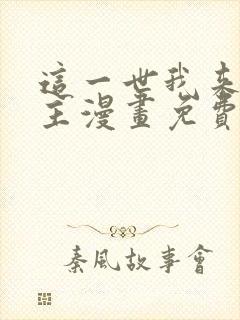 這一世我來
主漫畫免費
秦風故事會